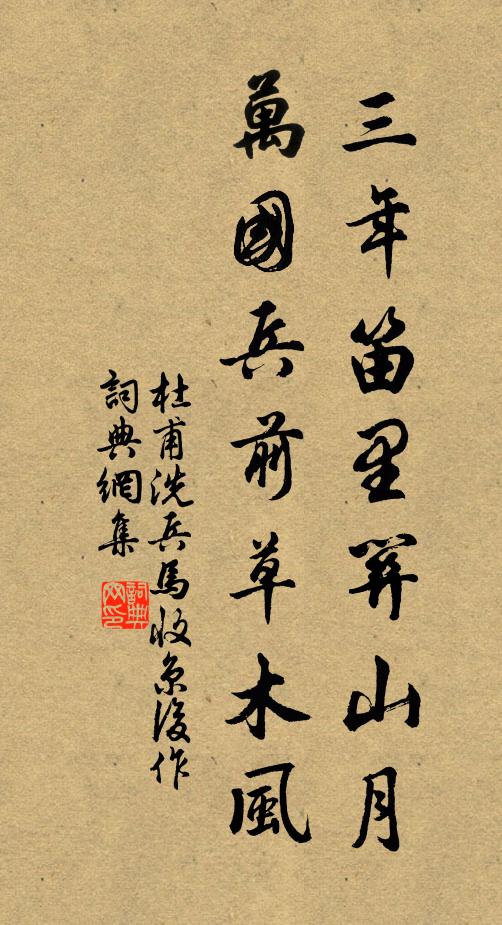 三年笛里關山月
萬國兵前草木風
杜甫洗兵馬收京後作
詞典網集
詞典
网印